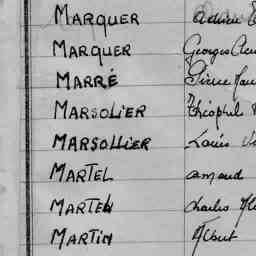 MARQUER
MARQUER Georges
MARRÉ Pierre
MARSOLIER Théophile
MARSOLLIER Louis
MARTEL Amand
MARTEL Charles
MARTIN Albert